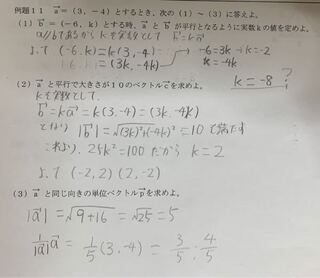 例題11 a⃗ = (3, -4) とするとき、次の(1)~(3)に答えよ。
(1) b⃗ = (-6, k) とする時、a⃗ と b⃗ が平行となるように実数kの値を定めよ。
a⃗//b⃗であるから kを実数として b⃗=ka⃗
よって (-6, k) = k(3, -4)
= (3k, -4k)
→ -6=3k ∴ k=-2
k=-4k
k=-8 ?
(2) a⃗ と平行で大きさが10のベクトル c⃗ を求めよ。
kを実数として、
b⃗ = ka⃗ = k(3, -4) = (3k, -4k)
となり |b⃗| = √(3k)²+(-4k)² = 10 で満たす
これより、25k²=100 だから k=2
よって (-2, 2) (2, -2)
(3) a⃗ と同じ向きの単位ベクトル p⃗ を求めよ。
|a⃗| = √9+16 = √25 = 5
1/|a⃗| a⃗ = 1/5 (3, -4) = 3/5 . 4/5